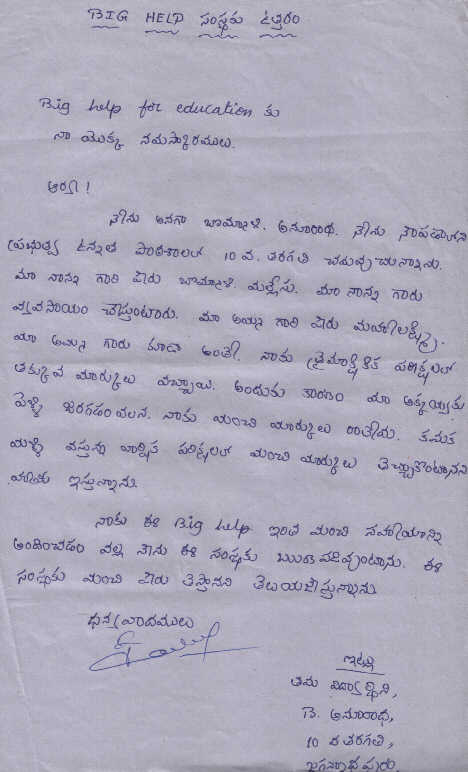 BIG HELP సంస్థకు ఉత్తరం
Big help for education కు
నా యొక్క నమస్కారములు.
ఆర్యా!
నేను అనగా బొమ్మాళి. అనూరాధ. నేను
ప్రభుత్వ ఉన్నత పాఠశాలలో 10 వ. తరగతి చదువుచున్నాను.
మా నాన్న గారి పేరు బొమ్మాళి. మల్లేసు. మా నాన్న గారు
వ్యవసాయం చేస్తుంటారు. మా అమ్మ గారి పేరు మహాలక్ష్మి.
మా అమ్మ గారు కూడా అంతే. నాకు త్రైమాసిక పరీక్షలలో
తక్కువ మార్కులు వచ్చాయి. అందుకు కారణం మా అక్కయ్యకు
పెళ్ళి జరగడం వలన. నాకు మంచి మార్కులు రాలేదు. కనుక
మళ్ళీ వస్తున్న వార్షిక పరీక్షలలో మంచి మార్కులు తెచ్చుకొంటానని
మాట ఇస్తున్నాను.
నాకు ఈ Big help ఇంత మంచి సహాయాన్ని
అందించడం వల్ల నేను ఈ సంస్థకు ఋణపడివుంటాను. ఈ
సంస్థకు మంచి పేరు తెస్తానని తెలియజేస్తున్నాను
ధన్యవాదములు
ఇట్లు
తమ విద్యార్థిని,
B. అనూరాధ,
10 వ తరగతి,
జగన్నాధపురం